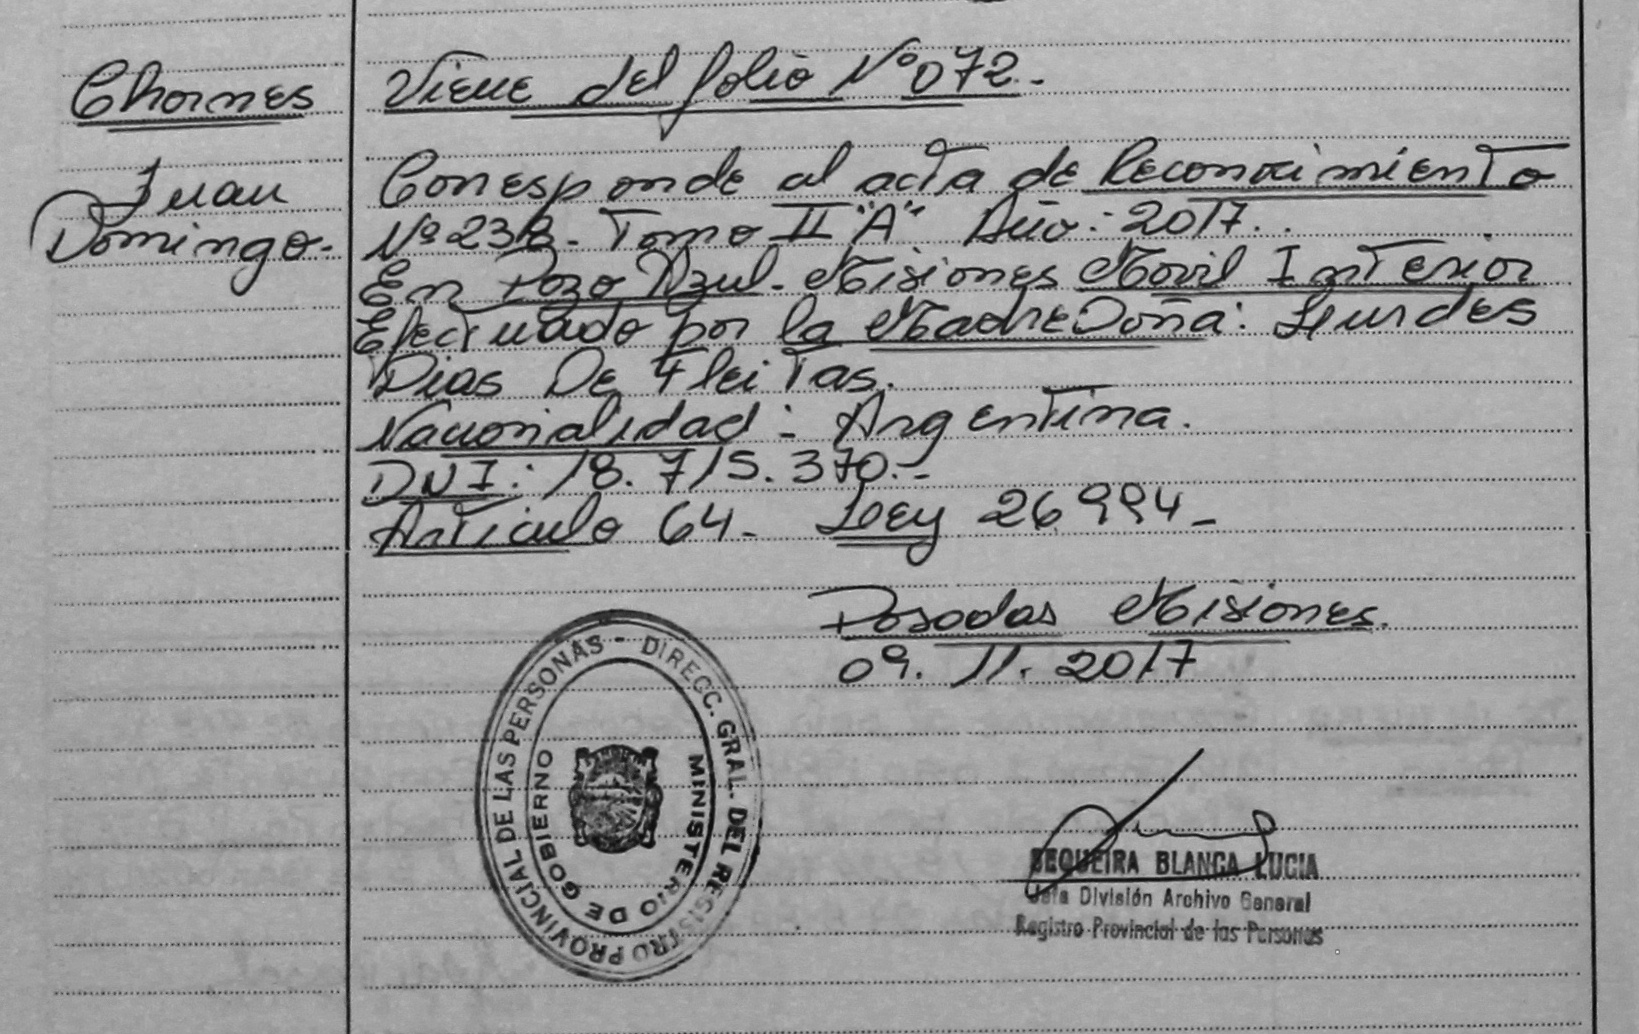 Chornes
Juan
Domingo.-
Viene del folio Nº 072.-
Corresponde al acta de Reconocimiento
Nº 238- Tomo II "A" Año: 2017.
En Pozo Azul- Misiones Movil Interior
Efectuado por la Madre Doña: Lurdes
Dias De Fleitas.
Nacionalidad: Argentina.
DNI: 18.715.370.-
Artículo 64- Ley 26994-
Posadas Misiones.
09.11.2017
DIRECC. GRAL. DEL REGISTRO PROVINCIAL DE LAS PERSONAS -
MINISTERIO DE GOBIERNO
SEQUEIRA BLANCA LUCIA
Jefa División Archivo General
Registro Provincial de las Personas